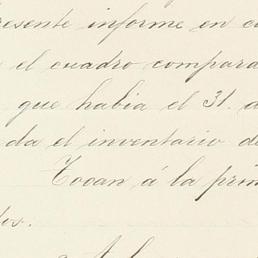 resente informe en c
el cuadro compara
que habia el 31. d
da el inventario de
Tocan á la prim